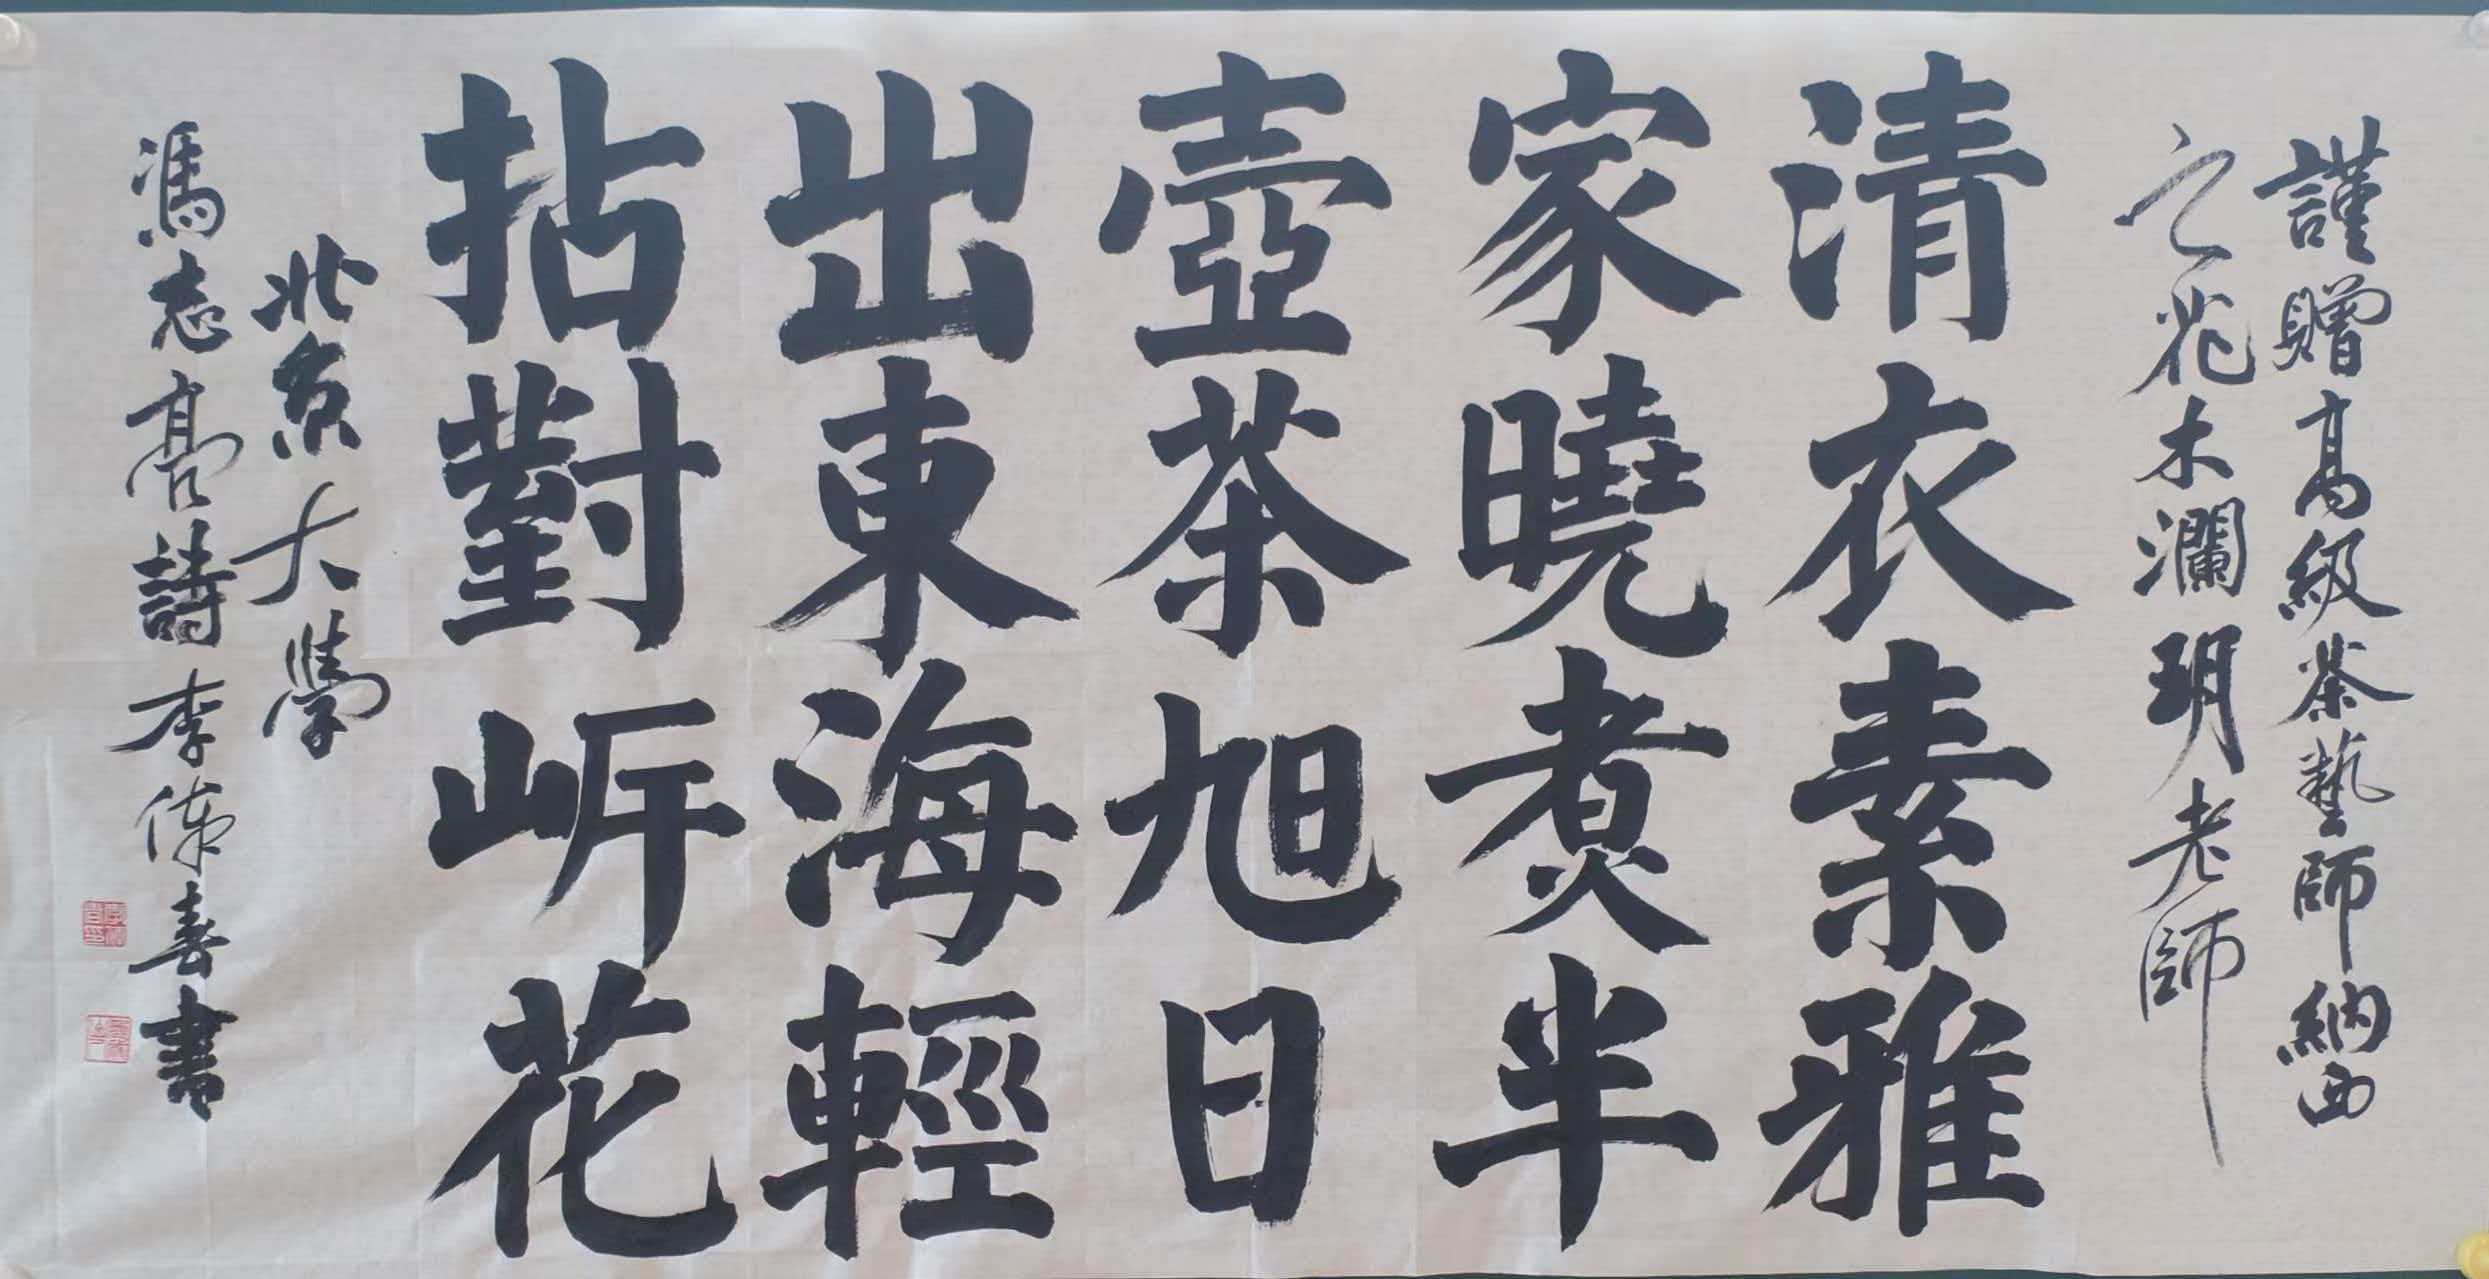 謹贈高級茶藝師納西
之花木瀾玥老師
清衣素雅
家曉煮半
壺茶旭日
出東海輕
拈對岍花
北京大學
馮志亮詩李偉喜書